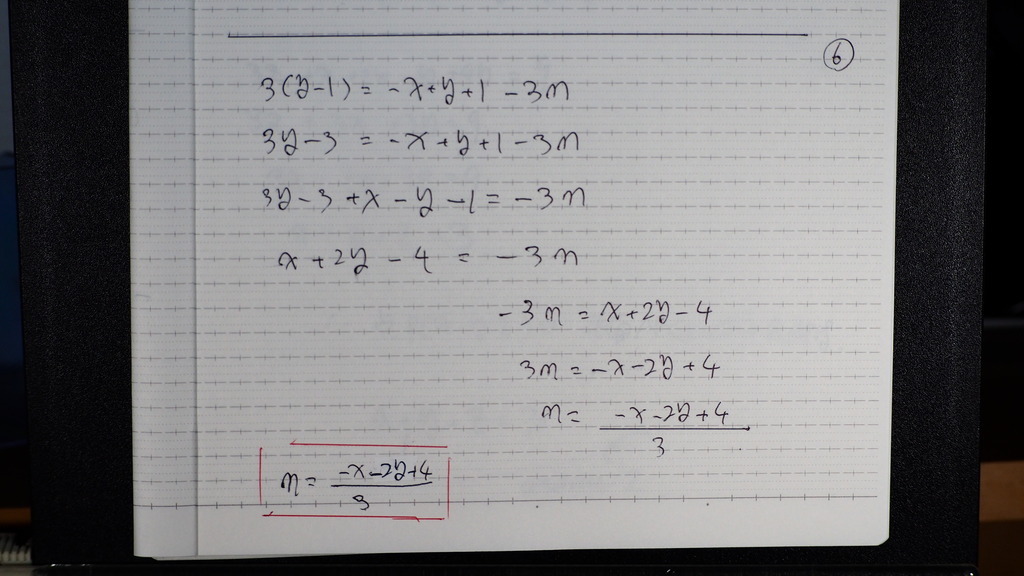 ⑥
3(y-1) = -x+y+1 -3n
3y-3 = -x+y+1-3n
3y-3+x-y-1 = -3n
x+2y-4 = -3n
-3n = x+2y-4
3n = -x-2y+4
n = \frac{-x-2y+4}{3}
n = \frac{-x-2y+4}{3}